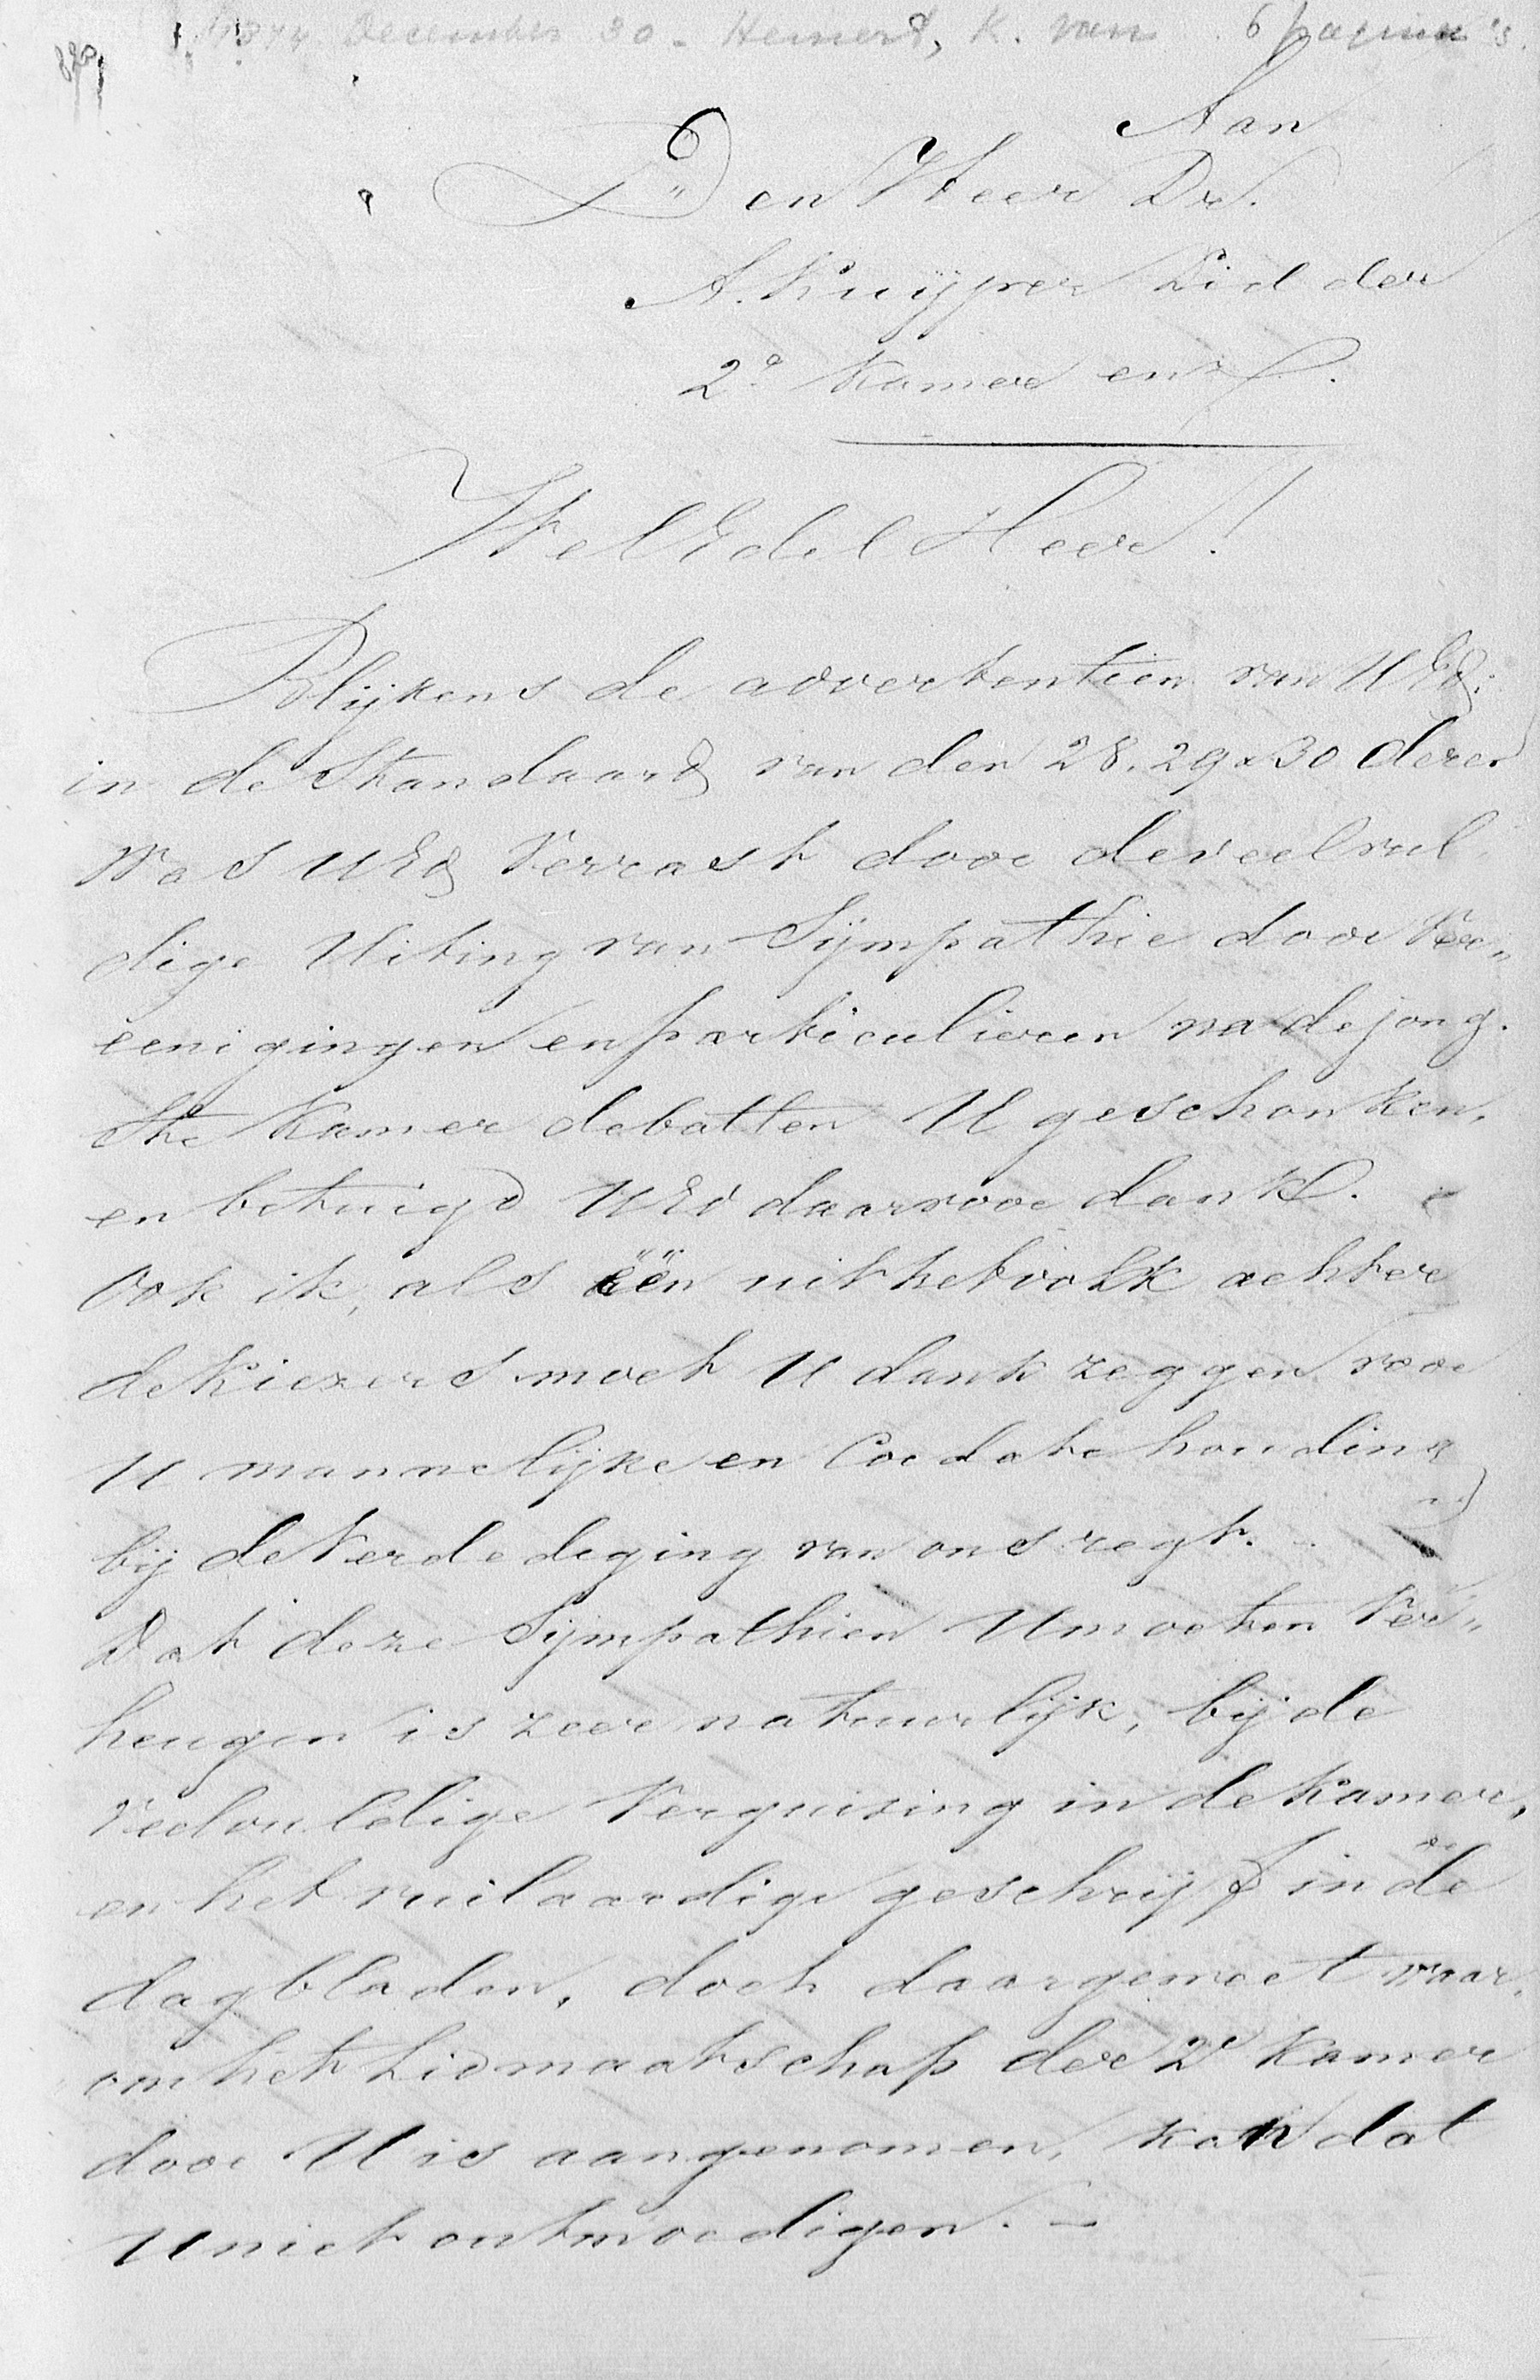 1874 December 30 - Heinert, K. van 6 pagina's.
Aan
Den Heer Dr.
A. Kuÿper Lid der
2e Kamer enz.
WelEdel Heer!
Blijkens de advertentien van UEd:
in de Standaard van den 28, 29 & 30 dezer
Was UEd Verrast door de veelvul„
dige Uiting van Sÿmpathie door Ver„
eenigingen en particulieren na de jong„
ste Kamer debatten U geschonken,
en betuigd UEd daarvoor dank.
Ook ik, als één uit het volk achter
de kiezers moet U dank zeggen voor
U mannelijke en Cordate houding
bij de Verdediging van ons regt.
Dat deze Sympathien U moeten Ver„
heugen is zeer natuurlijk, bij de
Veelvuldige Verguizing in de Kamer,
en het vuilaardige geschrijf in de
dagbladen, doch daargemeet waar„
om het Lidmaatschap der 2e Kamer
door U is aangenomen, kan dat
U niet ontmoedigen. —